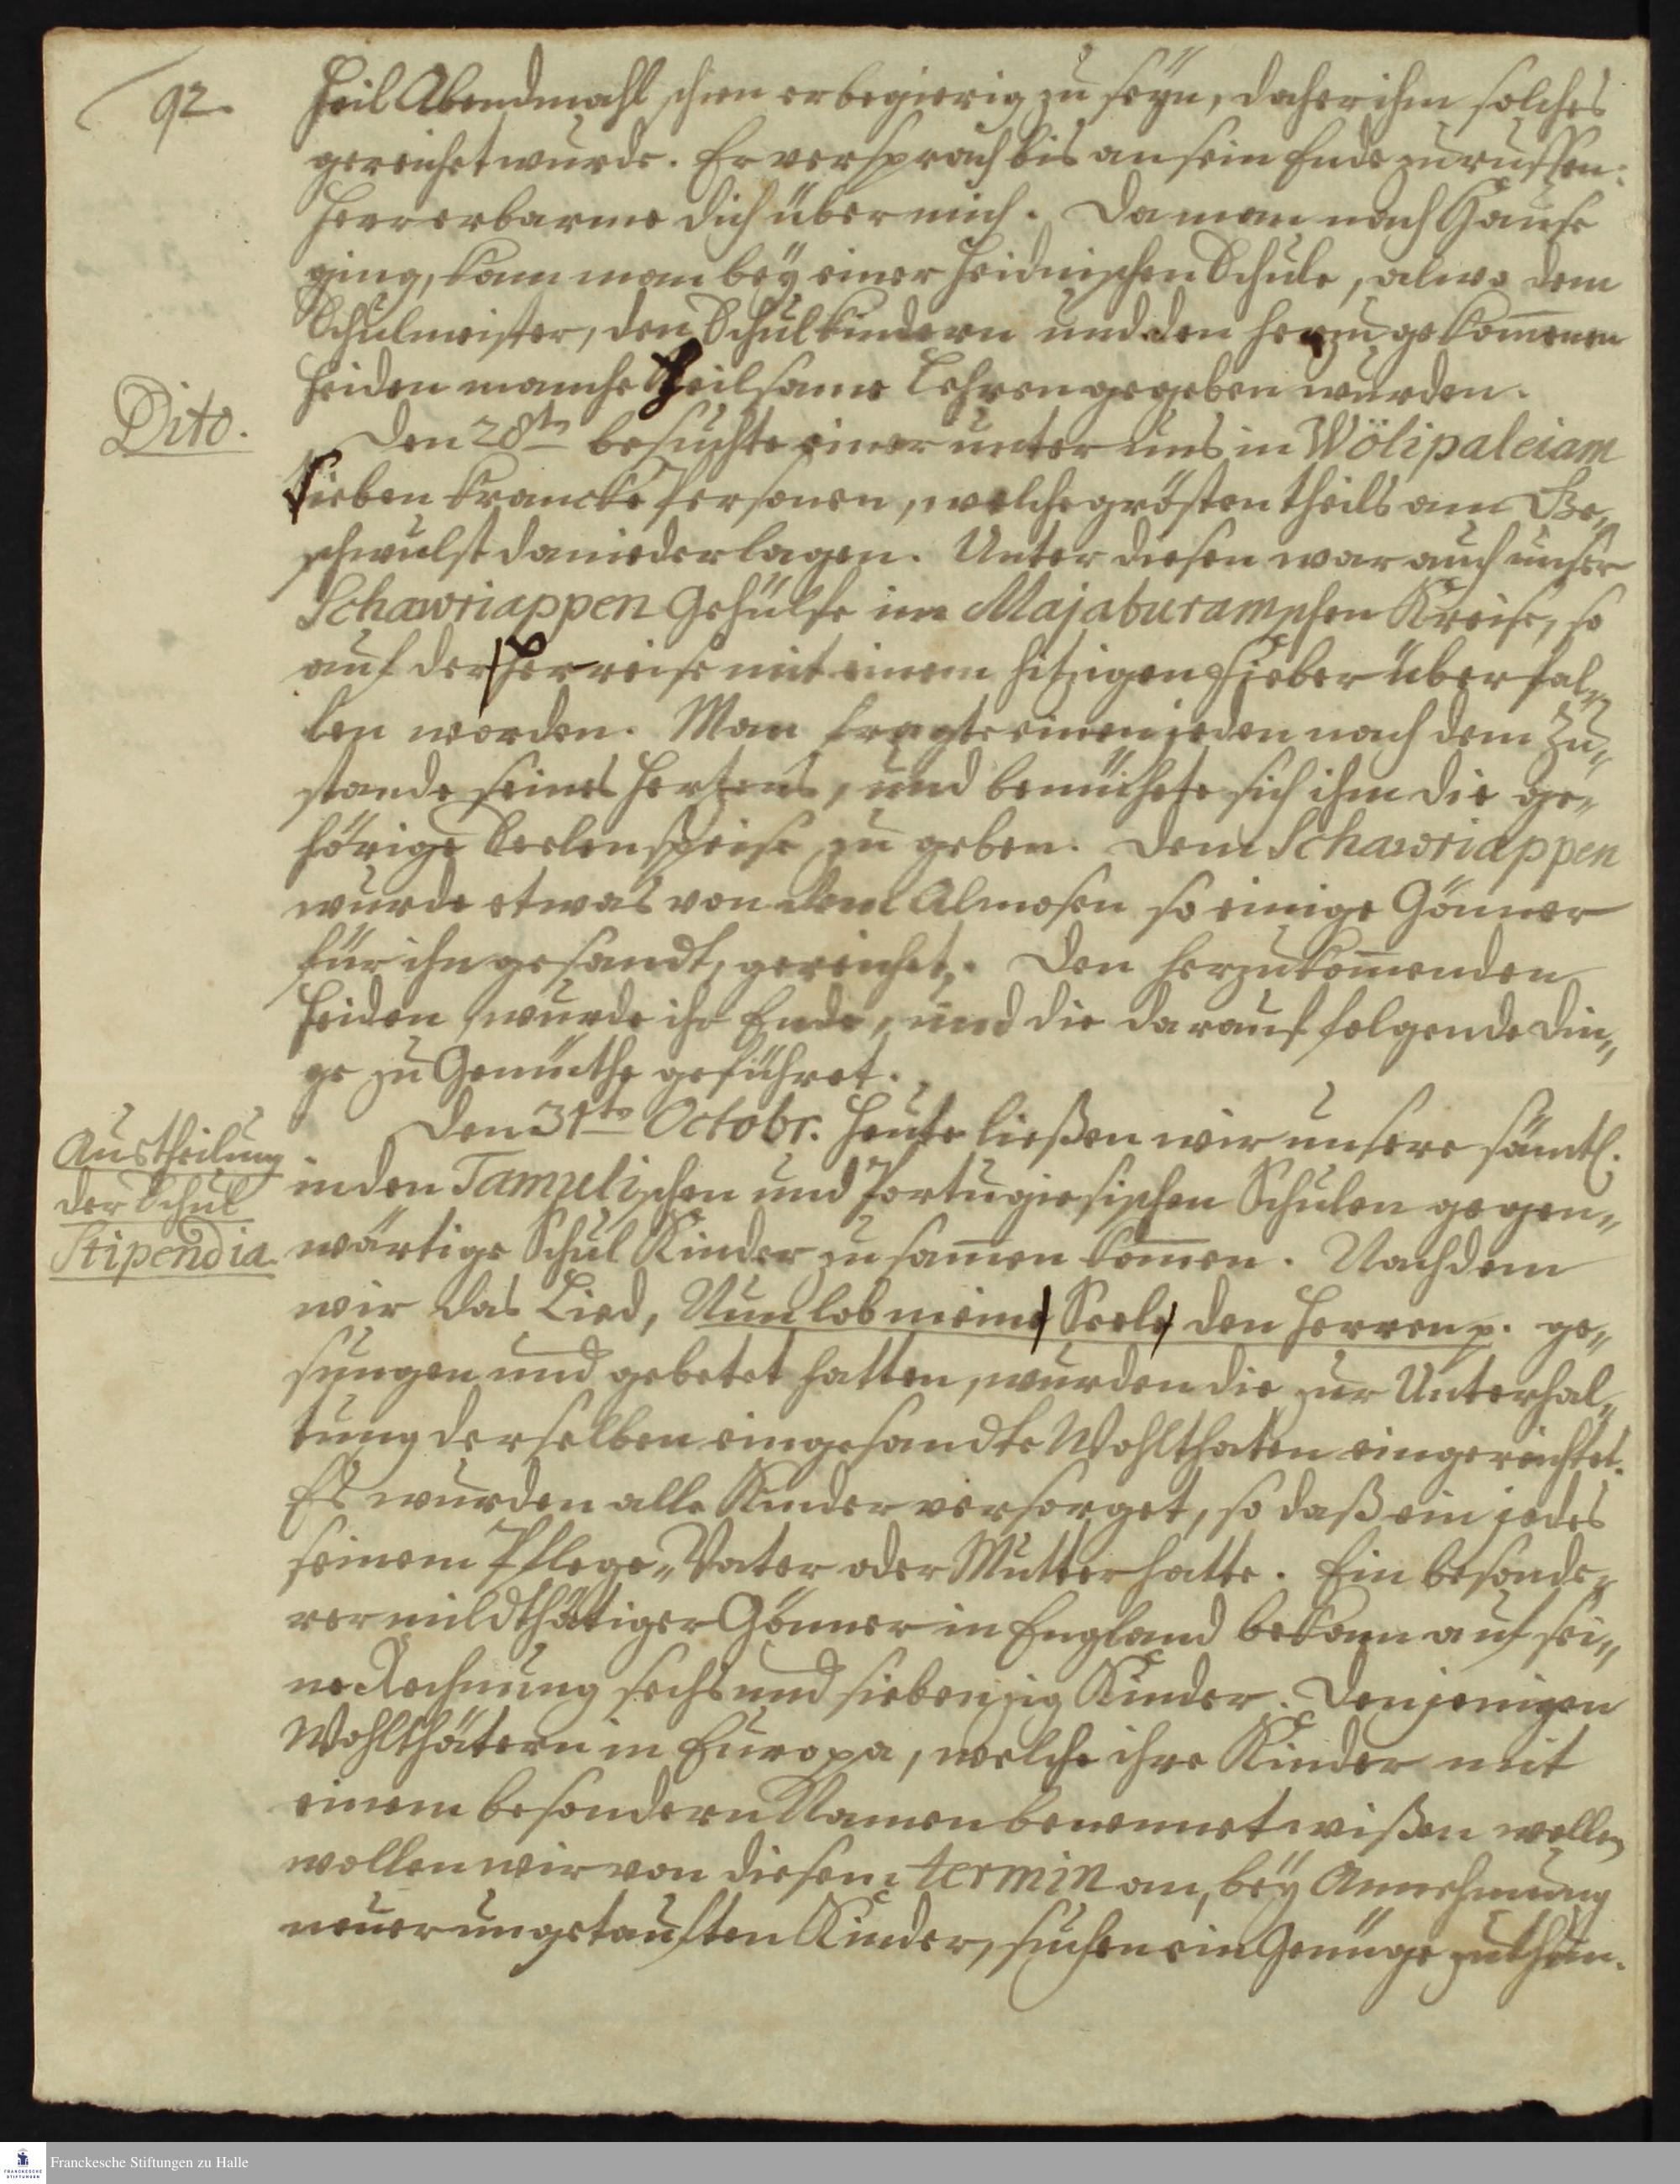 92.
Heil Abendmahl schien er begierig zu seyn, daher ihm solches
gereichet wurde. Er versprach bis an sein Ende zu ruffen:
Herr erbarme dich über mich. Da man nach Hause
ging, kam man bey einer heidnischen Schule, alwo dem
Schulmeister, den Schulkindern und den herzugekom̄enen
Heiden manche heilsame Lehren gegeben wurden.
Dito.
Den 28ten besuchte einer unter uns in Wölipaleiam
sieben krancke Personen, welche grösten theils am Ge„
schwulst danieder lagen. Unter diesen war auch unser
Schawriappen Gehülfe im Majaburamschen Kreise, so
auf der Herreise mit einem hitzigen Fieber überfal„
len worden. Man fragte einen jeden nach dem Zu„
stande seines Hertzens, und bemühete sich ihm die ge„
hörige Seelenspeise zu geben. Dem Schawriappen
wurde etwas von dem Almosen so einige Gönner
für ihn gesandt, gereichet. Den herzukom̄enden
Heiden wurde ihr Ende, und die darauf folgende Din„
ge zu Gemüthe geführet.
Austheilung
der Schul
Stipendia.
Den 31ten Octobr. Heute ließen wir unsere sämtl.
in den Tamulischen und Portugiesischen Schulen gegen„
wärtige Schul Kinder zusam̄en kom̄en. Nachdem
wir das Lied, Nun lob meine Seele den Herren p. ge„
sungen und gebetet hatten, wurden die zur Unterhal„
tung derselben eingesandte Wohlthaten eingerichtet.
Es wurden alle Kinder versorget, so daß ein jedes
seinem Pflege„Vater oder Mutter hatte. Ein besonde„
rer mildthätiger Gönner in England bekam auf sei„
ne Rechnung sechs und siebenzig Kinder. Denjenigen
Wohlthätern in Europa, welche ihre Kinder mit
einem besondern Namen benennet wißen wollen
wollen wir von diesem termin an, bey Annehmung
neuer ungetauften Kinder, suchen ein Genüge zu thun.
Franckesche Stiftungen zu Halle
FRANCKESCHE
STIFTUNGEN